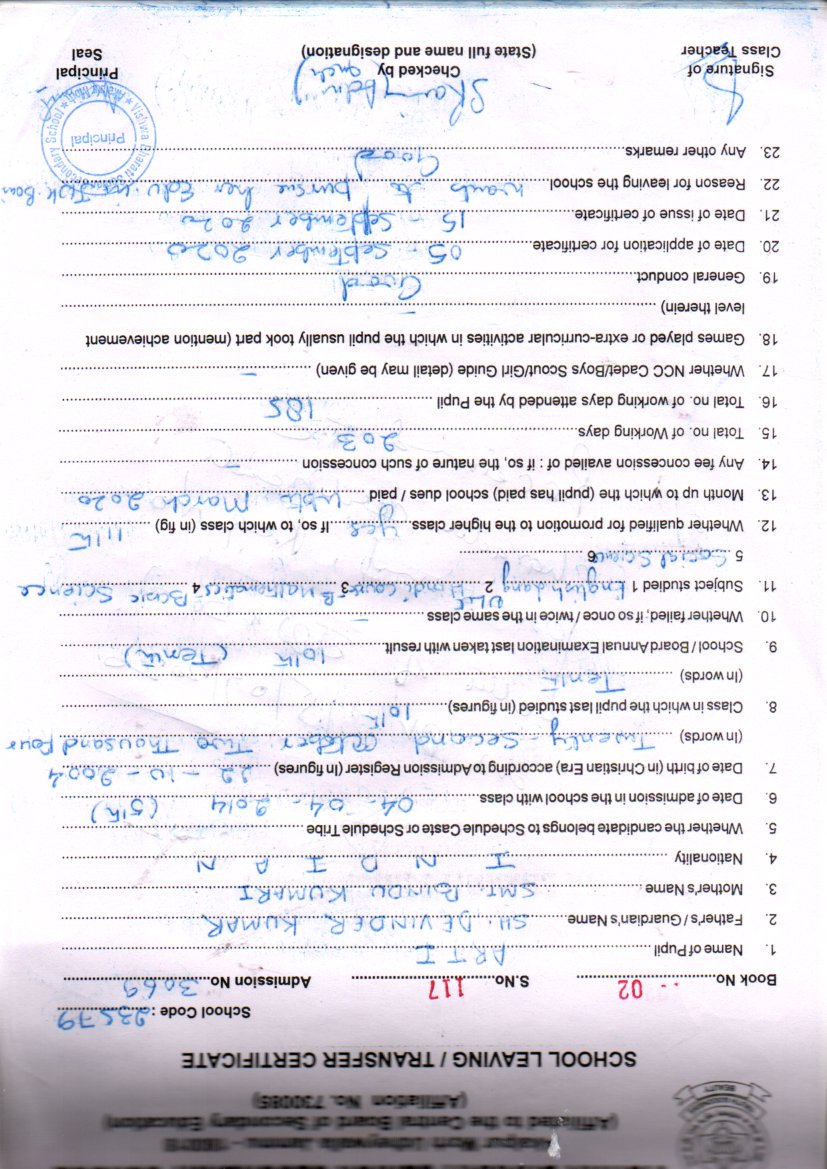 (Affiliated to the Central Board of Secondary Education)
(Affiliation No. 730085)
BEAUTY
SCHOOL LEAVING / TRANSFER CERTIFICATE
School Code : 23579
Book No. 02 S.No. 117 Admission No. 3069
1. Name of Pupil ARTI
2. Father's / Guardian's Name SH. DEVINDER KUMAR
3. Mother's Name SMT. BINDU KUMARI
4. Nationality INDIAN
5. Whether the candidate belongs to Schedule Caste or Schedule Tribe
6. Date of admission in the school with class 04-04-2014 (5th)
7. Date of birth (in Christian Era) according to Admission Register (In figures) 22-10-2004
(in words) Twenty-Second October Two Thousand Four
8. Class in which the pupil last studied (in figures) 10th
(In words) Tenth
9. School / Board Annual Examination last taken with result 10th (Tenth)
10. Whether failed, if so once / twice in the same class –
11. Subject studied 1 English Lang 2 Hindi Course-B 3 Mathematics 4 Basic Science
5 Social Science 6
12. Whether qualified for promotion to the higher class yes If so, to which class (in fig) 11th
13. Month up to which the (pupil has paid) school dues / paid upto March 2020
14. Any fee concession availed of : if so, the nature of such concession –
15. Total no. of Working days 203
16. Total no. of working days attended by the Pupil 185
17. Whether NCC Cadet/Boys Scout/Girl Guide (detail may be given) –
18. Games played or extra-curricular activities in which the pupil usually took part (mention achievement
level therein) –
19. General conduct Good
20. Date of application for certificate 05-September 2020
21. Date of issue of certificate 15-September 2020
22. Reason for leaving the school. wants to pursue her Edu. in J&K
23. Any other remarks Good
Vishwa Bharati
Secondary School
Principal
Signature of
Class Teacher
Checked by
(State full name and designation)
Principal
Seal